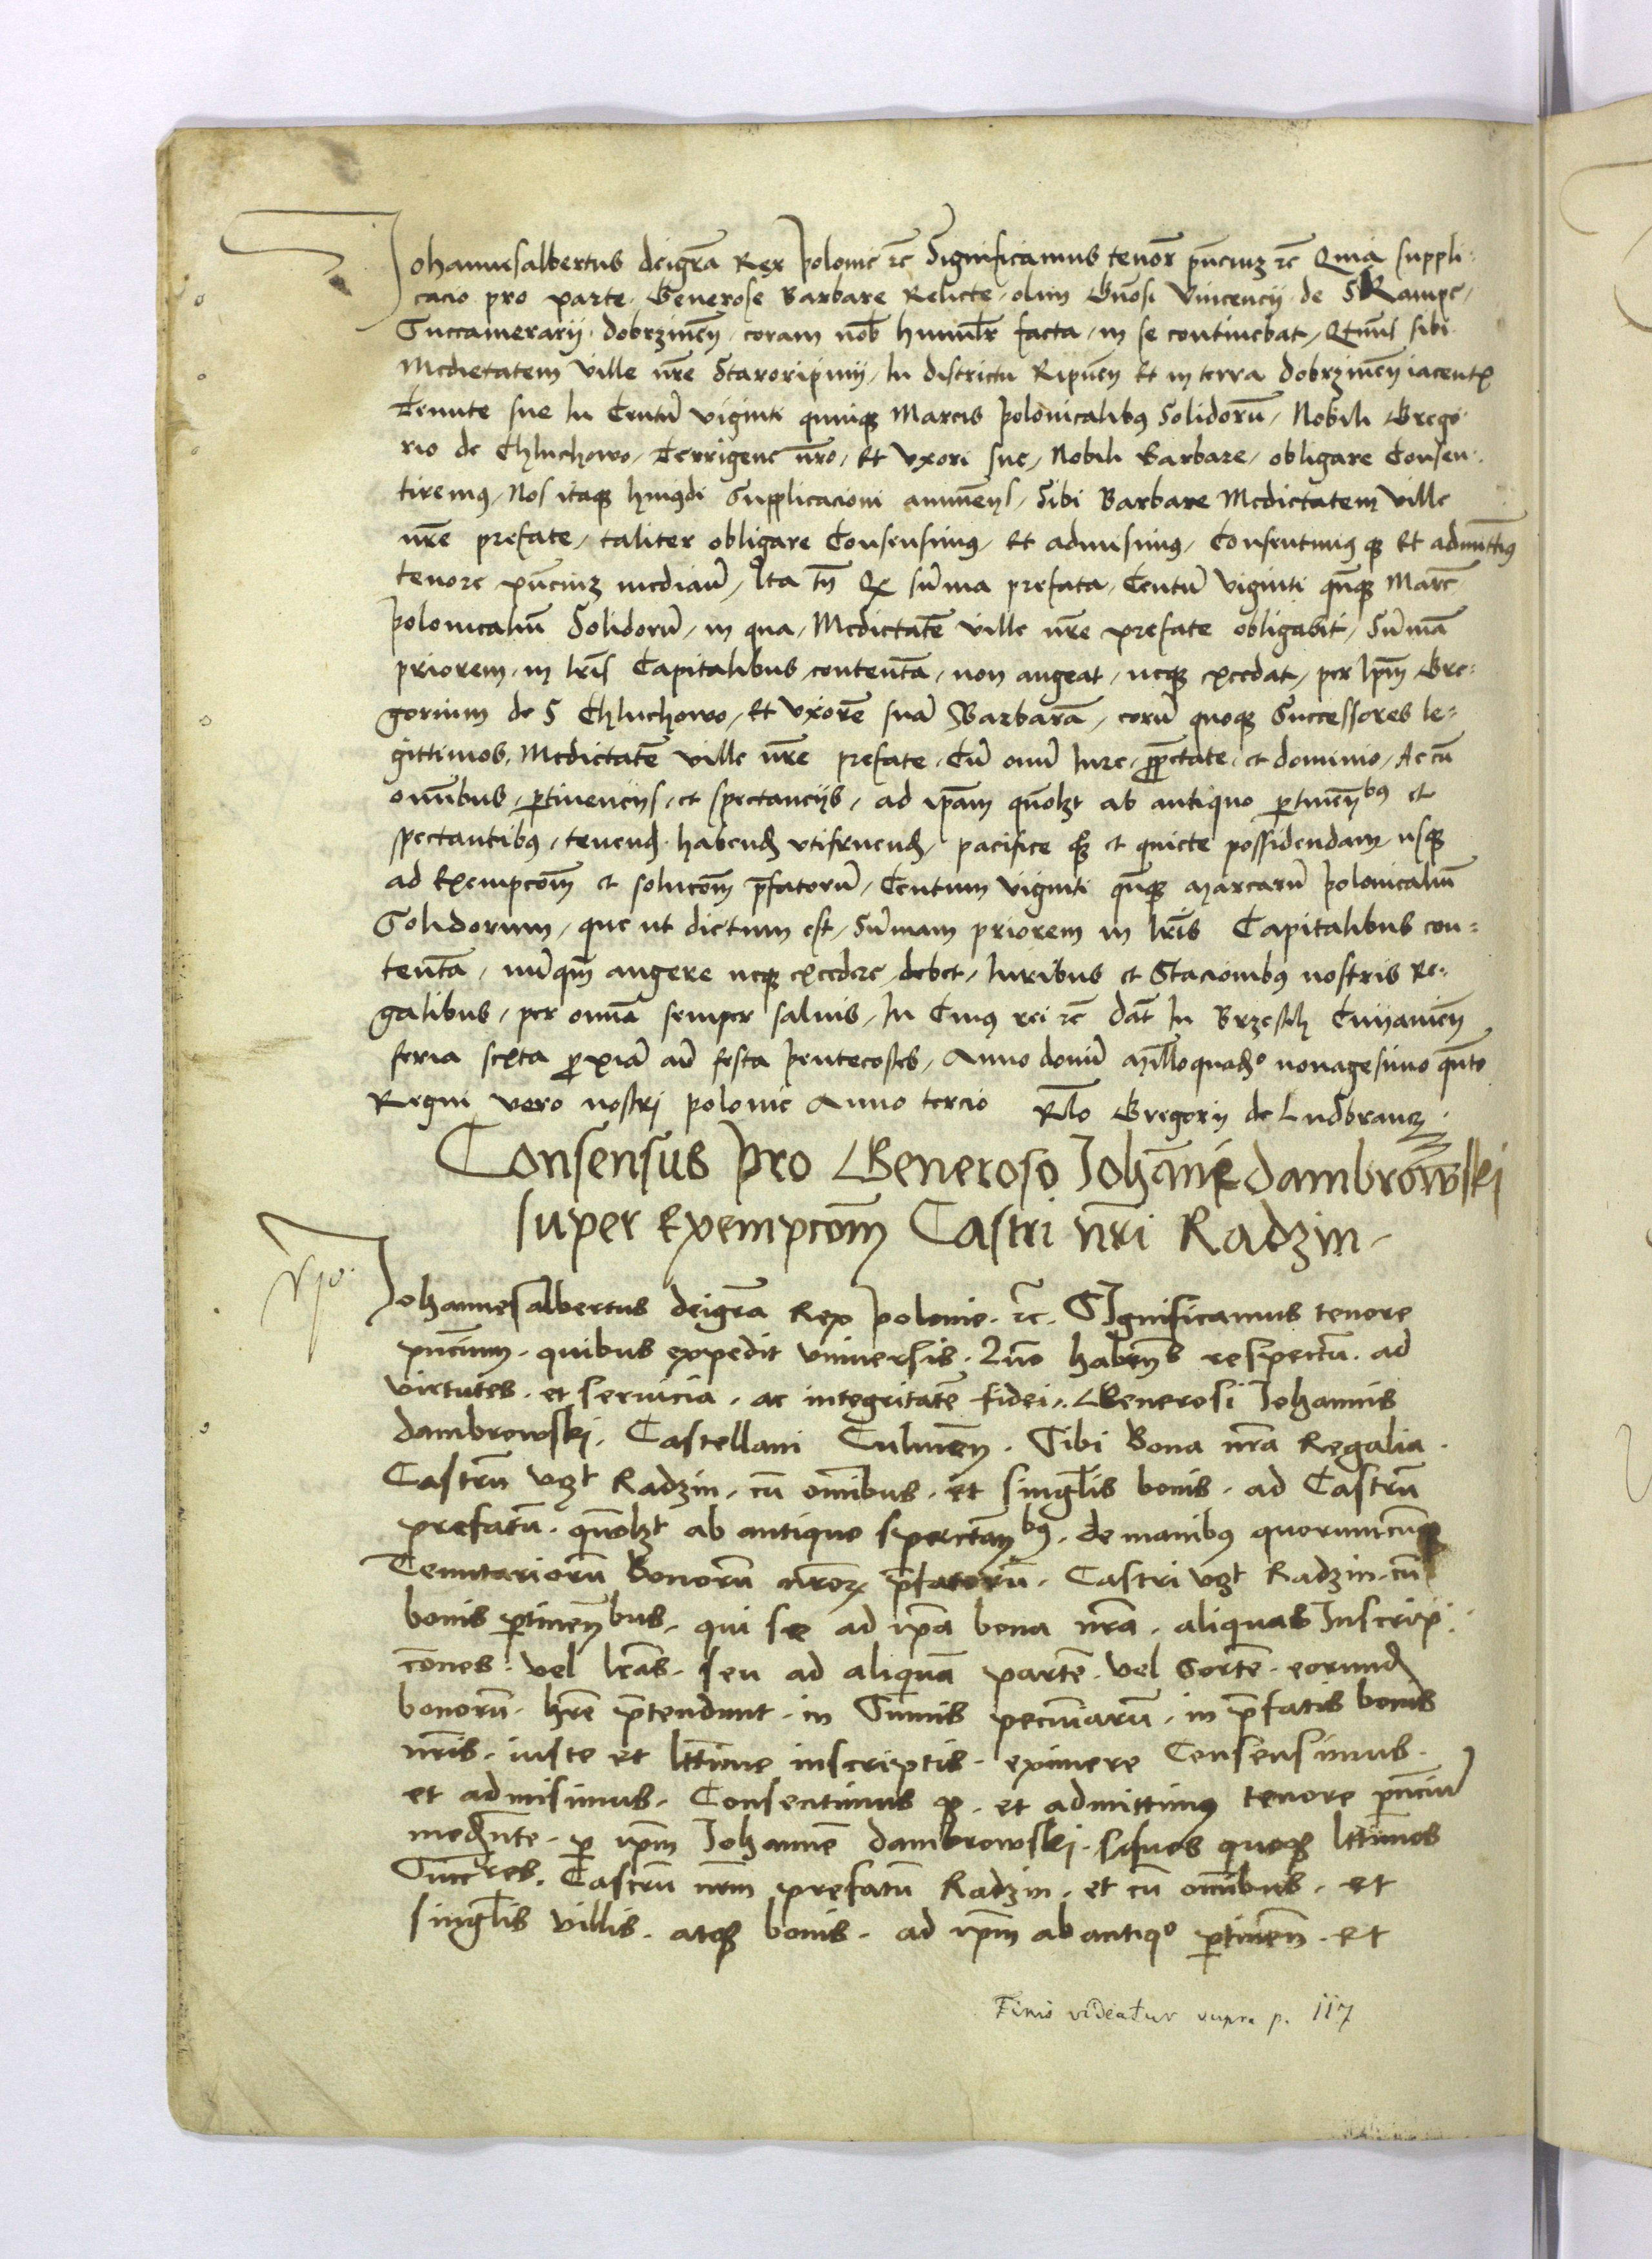 Johannesalbertus deigrã Rex polonie ꝛc̃ Significamus tenoꝛ̃ pñciuꝫ ꝛc̃ Quia suppli-
cacio pro parte Generose Barbare Relicte olim Gñosi Vincencij de SRampe
Succamerarij dobrzineñ coram nob̃ humilr̃ facta in se continebat Qtnus sibi
Medietatem Ville nr̃e Staroripinij In districtu Ripineñ Et in terra dobrzineñ iacentꝭ
Tenute sue In Centũ viginti quinqꝫ Marcis polonicalibꝯ Solidorũ Nobili Grego-
rio de Chluchowo Terrigene nr̃o Et Vxori sue Nobili Barbare obligare Consen-
tiremꝯ Nos itaqꝫ huiꝯdi Supplicacioni annueñs Sibi Barbare Medietatem Ville
nr̃e prefate taliter obligare Consensimꝯ Et admisimꝯ Consentimꝯ qꝫ Et admittimꝯ
tenore pñciuꝫ mediañ Ita tñ Qꝫ sum̃a prefata Centũ viginti qñqꝫ Marc̃
polonicaliũ Solidorũ in qua Medietatẽ ville nr̃e prefate obligabit Sum̃ã
priorem in lr̃is Capitalibus contentã non augeat neqꝫ excedat per Ipm̃ Gre-
gorium de S Chluchowo Et Vxorẽ suã Barbarã eorũ quoqꝫ Successores le-
gittimos Medietatẽ ville nr̃e prefate Cũ omĩ Iure ꝓprietate et dominio Ac cũ
omnibus ꝑtinencijs et spectancijs ad ipam quõlꝫt ab antiquo ꝑtineñbꝯ et
spectantibꝯ tenenꝺ habenꝺ vtifruenꝺ pacifice qꝫ et quiete possidendam usqꝫ
ad Exempcõm et solucõm p̃fatorũ Centum viginti qñqꝫ Marcarũ polonicaliũ
Solidorum que ut dictum est Sum̃am priorem in lr̃is Capitalibus con-
tentã nũqm̃ augere neqꝫ excedere debet Iuribus et Stacionibꝯ nostris Re-
galibus per omnia semper saluis In Cuiꝯ rei ꝛc̃ dat̃ In Brzesch Cuyauieñ
feria sexta ꝓxiã añ festa pentecostes Anno domĩ Millõquadᵒ nonagesimo qñto
Regni vero nostri polonie Anno tercio Rlõ Gregorij de Ludbrancz
Consensus pro Generoso Johãnie dambrowski
super Exempcõm Castri nr̃i Radzin
Johannesalbertus deigrã Rex polonie ꝛc̃ Significamus tenore
pñcium quibus expedit vniversis Quõ habeñs respectũ ad
virtutes et seruicia ac integritatẽ fidei Generosi Johannis
dambrowski Castellani Culmeñ Sibi Bona nr̃a Regalia
Castrũ vꝫt Radzin cũ om̃ibus et singl̃is bonis ad Castrũ
prefatũ quõlꝫt ab antiquo spectañbꝯ de manibꝯ quorumcũqꝫ
Tenutariorũ Bonorũ nr̃oꝝ p̃fatorũ Castri vꝫt Radzin cũ
bonis ꝑtineñbus qui se ad ip̃a bona nr̃a aliquas Inscrip-
cõnes vel lr̃as seu ad aliquã partẽ vel Sortẽ eorunꝺ
bonorũ hr̃e p̃tendunt in Sumis pecuniarũ in p̃fatis bonis
nr̃is iuste et lttime inscriptis eximere Consensimus
et admisimus Consentimus qꝫ et admittimꝯ tenore pñciũ
medĩnte ꝑ ipm̃ Johannẽ dambrowski suos quoqꝫ lttimos
Succ̃res Castrũ nr̃m prefatũ Radzin et cũ om̃ibus et
singl̃is villis atqꝫ bonis ad ipm̃ ab antiqᵒ ꝑtineñ et
Finis videatur supra p. 117